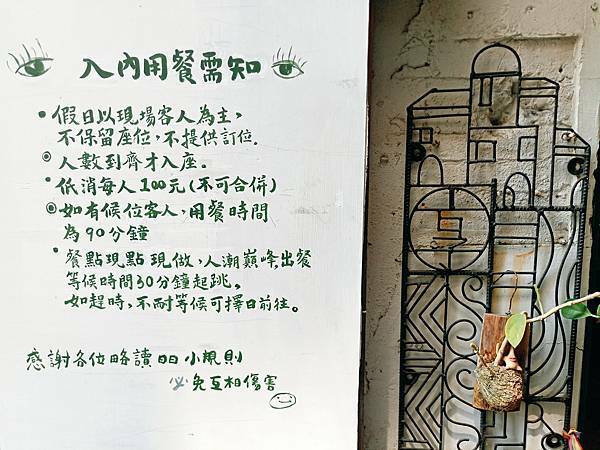 入內用餐需知
假日以現場客人為主,
不保留座位,不提供訂位.
人數到齊才入座.
低消每人100元(不可合併)
如有候位客人,用餐時間
為90分鐘
餐點現點現做,人潮巔峰出餐
等候時間30分鐘起跳,
如趕時、不耐等候可擇日前往。
感謝各位略讀 小規則
必免互相傷害